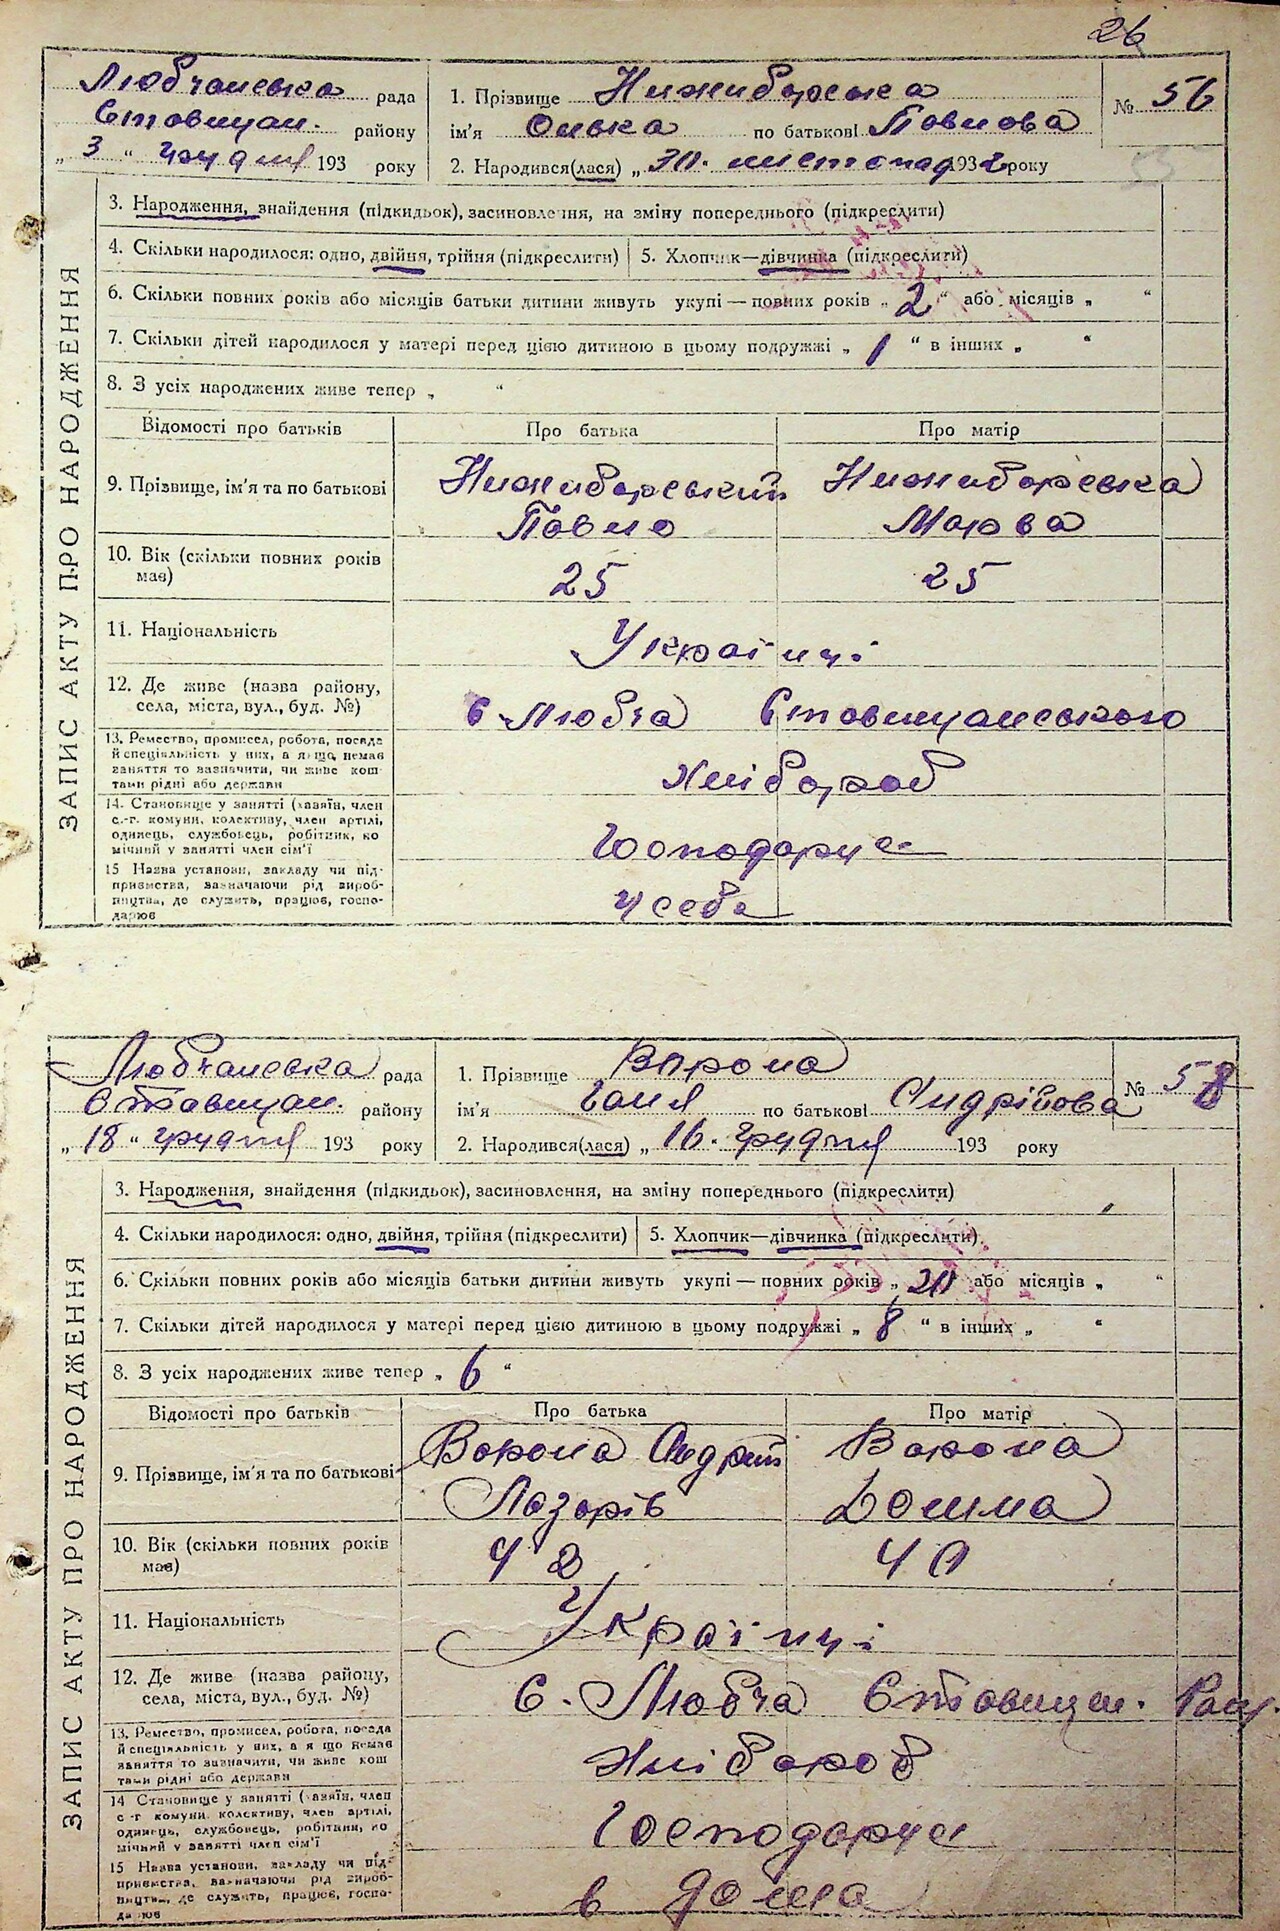 26
Любчанська рада
Стовищан. району
„ 3 “ грудня 193 року
1. Прізвище Нижиборська
ім'я Олька по батькові Павлова
2. Народився(лася) „ 30. листопад 1932 року
№ 56
53
ЗАПИС АКТУ ПРО НАРОДЖЕННЯ
3. Народження, знайдення (підкидьок), засиновлення, на зміну попереднього (підкреслити)
4. Скільки народилося: одно, двійня, трійня (підкреслити) 5. Хлопчик—дівчинка (підкреслити)
6. Скільки повних років або місяців батьки дитини живуть укупі — повних років „ 2 “ або місяців „ “
7. Скільки дітей народилося у матері перед цією дитиною в цьому подружжі „ 1 “ в інших „ “
8. З усіх народжених живе тепер „ “
Відомості про батьків Про батька Про матір
9. Прізвище, ім'я та по батькові Нижиборський Павло Нижиборська Мотва
10. Вік (скільки повних років має) 25 25
11. Національність Українці
12. Де живе (назва району, села, міста, вул., буд. №) с. Любча Стовищанського
13. Ремество, промисел, робота, посада й спеціяльність у них, а якщо немає заняття то зазначити, чи живе коштами рідні або держави Хлібороб
14. Становище у занятті (хазяїн, член с.-г. комуни, колективу, член артілі, одинець, службовець, робітник, помічний у занятті член сім'ї Господарює
15 Назва установи, закладу чи підприємства, зазначаючи рід виробництва, де служить, працює, господарює у себе
Любчанська рада
Ставищан. району
„ 18 “ грудня 193 року
1. Прізвище Ворона
ім'я Ганя по батькові Андрійова
2. Народився(лася) „ 16. грудня 193 року
№ 58
ЗАПИС АКТУ ПРО НАРОДЖЕННЯ
3. Народження, знайдення (підкидьок), засиновлення, на зміну попереднього (підкреслити)
4. Скільки народилося: одно, двійня, трійня (підкреслити) 5. Хлопчик—дівчинка (підкреслити)
6. Скільки повних років або місяців батьки дитини живуть укупі — повних років „ 20 “ або місяців „ “
7. Скільки дітей народилося у матері перед цією дитиною в цьому подружжі „ 8 “ в інших „ “
8. З усіх народжених живе тепер „ 6 “
Відомості про батьків Про батька Про матір
9. Прізвище, ім'я та по батькові Ворона Андрій Лазорів Ворона Домма
10. Вік (скільки повних років має) 42 40
11. Національність Українці
12. Де живе (назва району, села, міста, вул., буд. №) С. Любча Ставищан. Рай.
13. Ремество, промисел, робота, посада й спеціяльність у них, а якщо немає заняття то зазначити, чи живе коштами рідні або держави Хлібороб
14 Становище у занятті (хазяїн, член с.-г. комуни, колективу, член артілі, одинець, службовець, робітник, помічний у занятті член сім'ї Господарює
15 Назва установи, закладу чи підприємства, зазначаючи рід виробництва, де служить, працює, господарює в дома